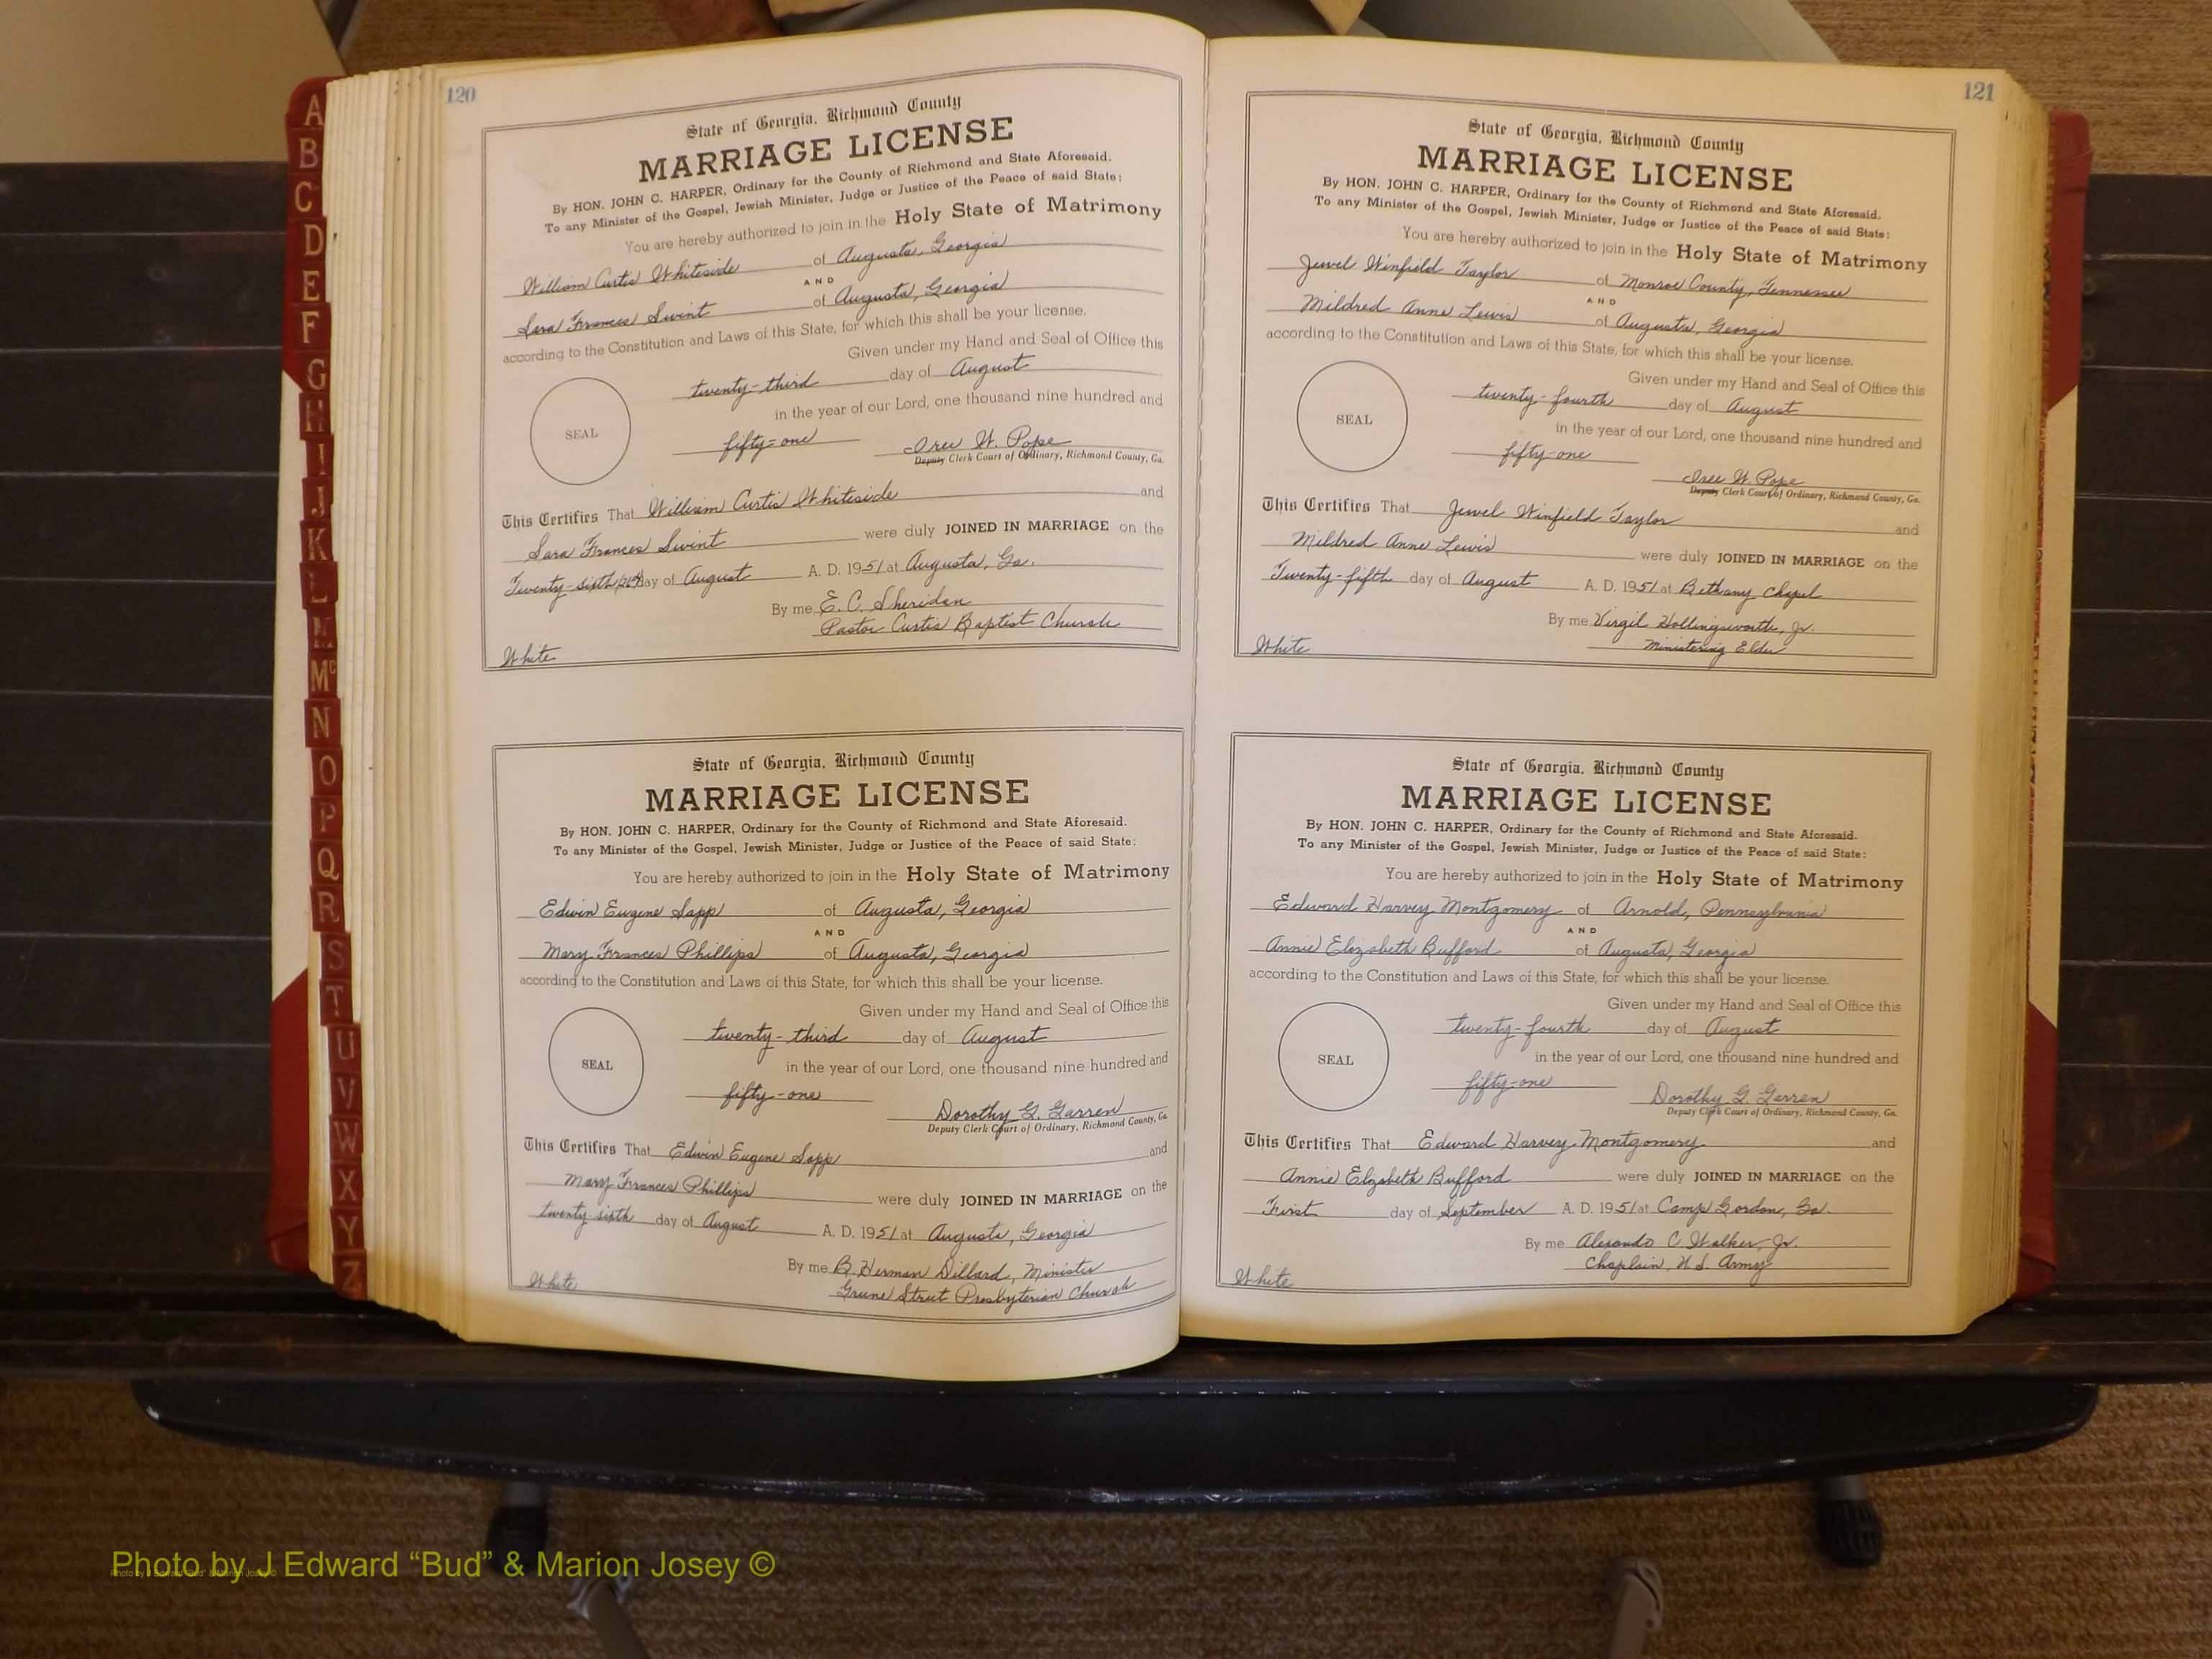 A
B
C
D
E
F
G
H
I
J
K
L
M
Mc
N
O
P
Q
R
S
T
U
V
W
X
Y
Z
120
State of Georgia, Richmond County
MARRIAGE LICENSE
By HON. JOHN C. HARPER, Ordinary for the County of Richmond and State Aforesaid.
To any Minister of the Gospel, Jewish Minister, Judge or Justice of the Peace of said State:
You are hereby authorized to join in the Holy State of Matrimony
William Curtis Whiteside of Augusta, Georgia
AND
Sara Frances Swint of Augusta, Georgia
according to the Constitution and Laws of this State, for which this shall be your license.
Given under my Hand and Seal of Office this
twenty-third day of August
in the year of our Lord, one thousand nine hundred and
SEAL
fifty-one W. Pope
Deputy Clerk Court of Ordinary, Richmond County, Ga.
This Certifies That William Curtis Whiteside and
Sara Frances Swint were duly JOINED IN MARRIAGE on the
Twenty-sixth day of August A. D. 1951 at Augusta, Ga.
By me E. C. Sheridan
Pastor Curtis Baptist Church
White
State of Georgia, Richmond County
MARRIAGE LICENSE
By HON. JOHN C. HARPER, Ordinary for the County of Richmond and State Aforesaid.
To any Minister of the Gospel, Jewish Minister, Judge or Justice of the Peace of said State:
You are hereby authorized to join in the Holy State of Matrimony
Edwin Eugene Sapp of Augusta, Georgia
AND
Mary Frances Phillips of Augusta, Georgia
according to the Constitution and Laws of this State, for which this shall be your license.
Given under my Hand and Seal of Office this
twenty-third day of August
in the year of our Lord, one thousand nine hundred and
SEAL
fifty-one Dorothy G. Garren
Deputy Clerk Court of Ordinary, Richmond County, Ga.
This Certifies That Edwin Eugene Sapp and
Mary Frances Phillips were duly JOINED IN MARRIAGE on the
twenty-sixth day of August A. D. 1951 at Augusta, Georgia
By me B. Herman Dillard, Minister
Grune Street Presbyterian Church
White
121
State of Georgia, Richmond County
MARRIAGE LICENSE
By HON. JOHN C. HARPER, Ordinary for the County of Richmond and State Aforesaid.
To any Minister of the Gospel, Jewish Minister, Judge or Justice of the Peace of said State:
You are hereby authorized to join in the Holy State of Matrimony
Jewel Winfield Taylor of Monroe County, Tennessee
AND
Mildred Anne Lewis of Augusta, Georgia
according to the Constitution and Laws of this State, for which this shall be your license.
Given under my Hand and Seal of Office this
twenty-fourth day of August
in the year of our Lord, one thousand nine hundred and
SEAL
fifty-one W. Pope
Deputy Clerk Court of Ordinary, Richmond County, Ga.
This Certifies That Jewel Winfield Taylor and
Mildred Anne Lewis were duly JOINED IN MARRIAGE on the
Twenty-fifth day of August A. D. 1951 at Bethany Chapel
By me Virgil Hollingsworth, Jr.
Ministering Elder
White
State of Georgia, Richmond County
MARRIAGE LICENSE
By HON. JOHN C. HARPER, Ordinary for the County of Richmond and State Aforesaid.
To any Minister of the Gospel, Jewish Minister, Judge or Justice of the Peace of said State:
You are hereby authorized to join in the Holy State of Matrimony
Edward Harvey Montgomery of Arnold, Pennsylvania
AND
Annie Elizabeth Bufford of Augusta, Georgia
according to the Constitution and Laws of this State, for which this shall be your license.
Given under my Hand and Seal of Office this
twenty-fourth day of August
in the year of our Lord, one thousand nine hundred and
SEAL
fifty-one Dorothy G. Garren
Deputy Clerk Court of Ordinary, Richmond County, Ga.
This Certifies That Edward Harvey Montgomery and
Annie Elizabeth Bufford were duly JOINED IN MARRIAGE on the
First day of September A. D. 1951 at Camp Gordon, Ga.
By me C Walker, Jr.
Chaplain, U.S. Army
White
Photo by J Edward "Bud" & Marion Josey ©
Photo by J Edward "Bud" & Marion Josey ©